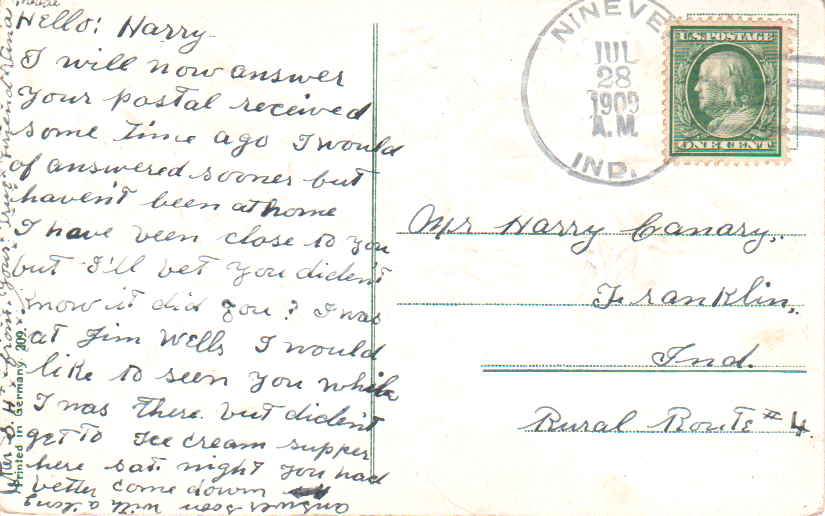 Hello: Harry.
I will now answer
your postal received
some time ago I would
of answered sooner but
haven't been at home
I have been close to you
but I'll bet you dident
know it did you? I was
at Jim Wells I would
like to seen you while
I was there but dident
get to Ice cream supper
here sat. night you had
better come down
answer soon with a long
letter from your true friend
Printed in Germany 209.
NINEVE
JUL
28
1909
A.M.
IND.
U.S. POSTAGE
ONE CENT
Mr Harry Canary,.
Franklin,.
Ind.
Rural Route #4.